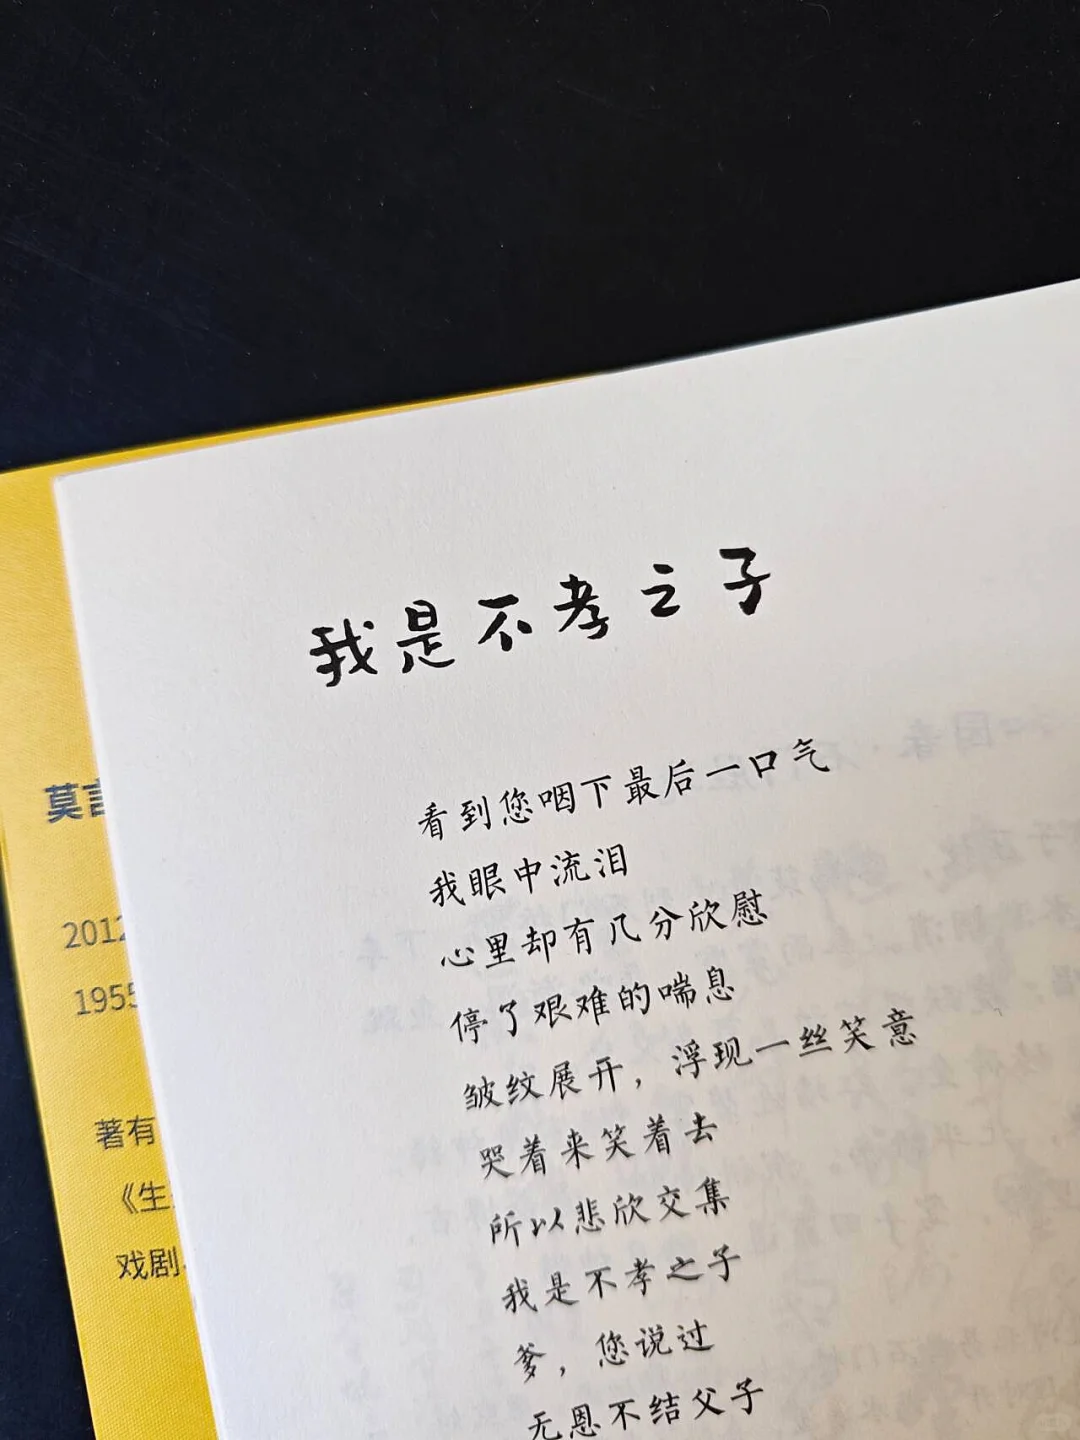 我是不孝之子
看到您咽下最后一口气
我眼中流泪
心里却有几分欣慰
停了艰难的喘息
皱纹展开，浮现一丝笑意
哭着来笑着去
所以悲欣交集
我是不孝之子
爹，您说过
无恩不结父子
莫言
2012
1955
著有
《生
戏剧